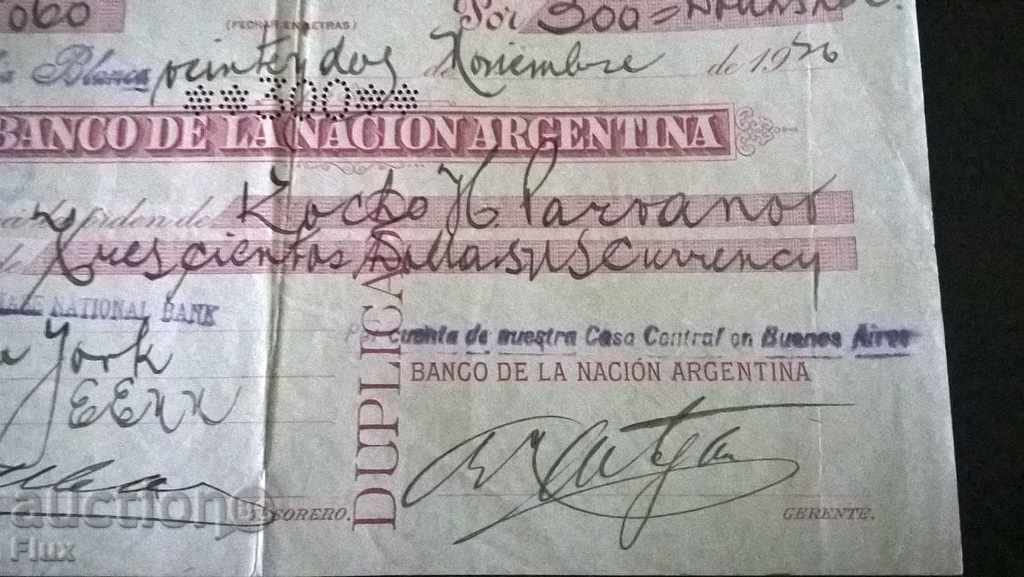 060 Por 300=
(FECHA EN LETRAS)
Blanca veintey dos de Noviembre de 1926
**300**
BANCO DE LA NACION ARGENTINA
a la orden de Kocho H. Parvanof
de Trescientos Dollars US Currency
NATIONAL BANK
York
Por cuenta de nuestra Casa Central en Buenos Aires
BANCO DE LA NACIÓN ARGENTINA
DUPLICADO
TESORERO. GERENTE.
auction
Flux